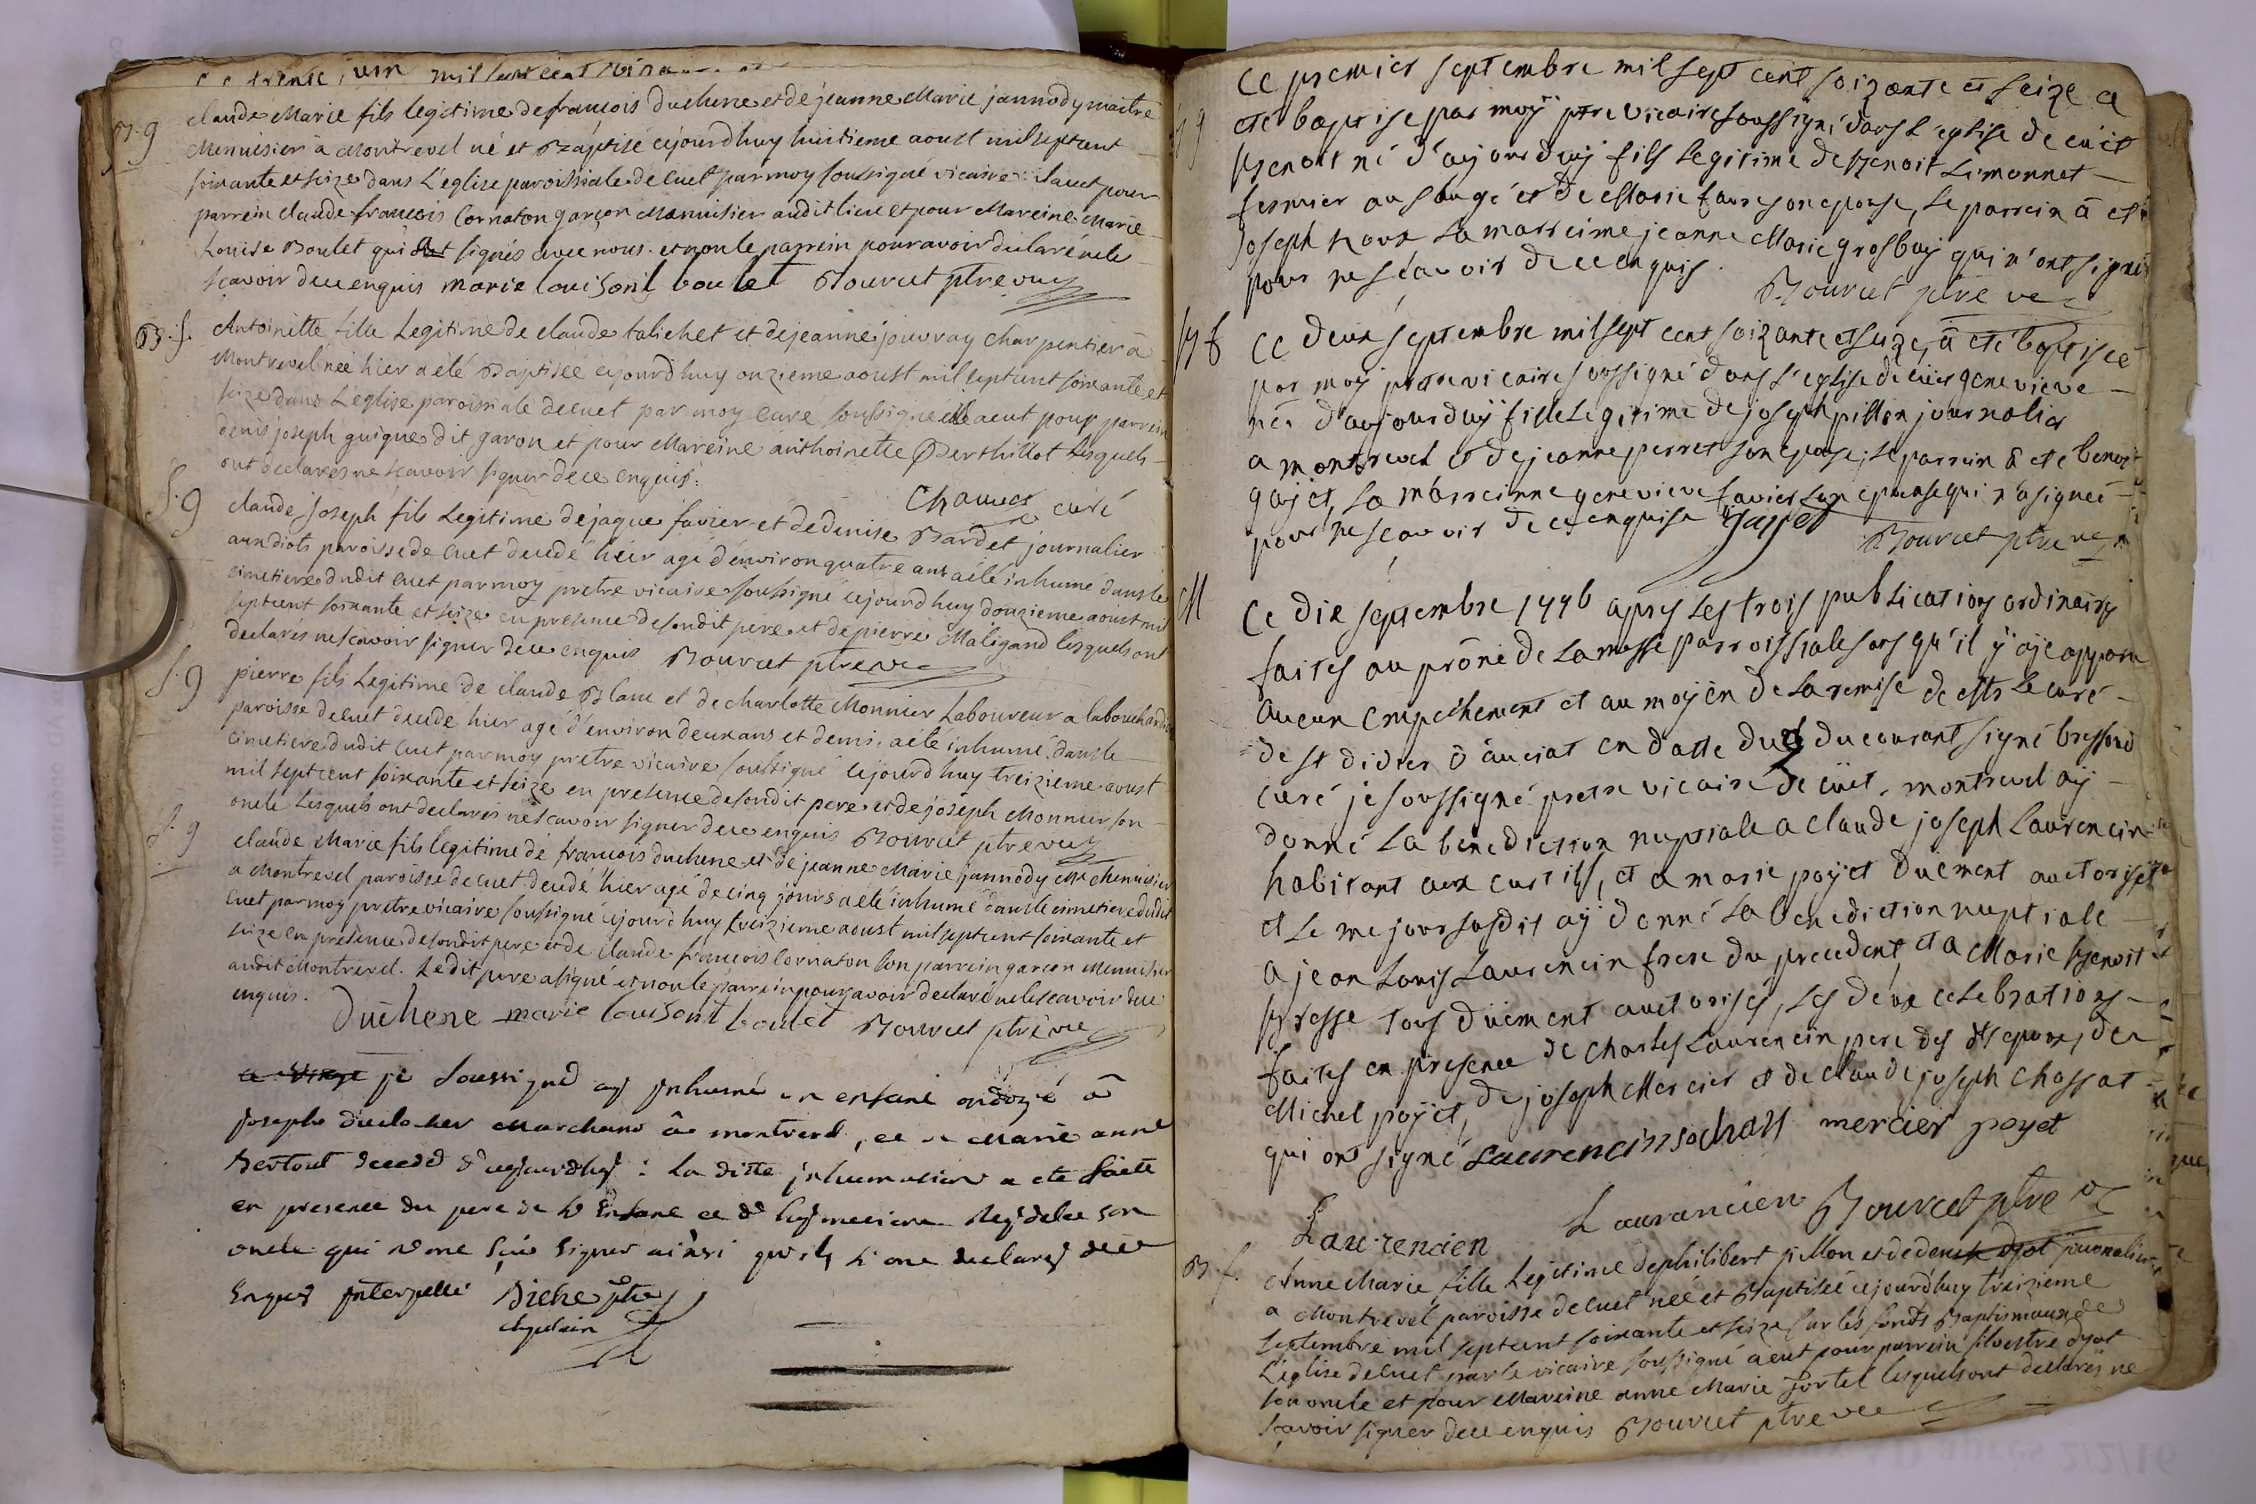 B. g
claude Marie fils legitime de francois duchene et de jeanne Marie jannody maitre
Menuisier à Montrevel né et Baptisé cejourdhuy huitieme aoust mil septcent
soixante et seize dans L'eglise paroissiale de cuet par moy soussigné vicaire il a eut pour
parrein claude francois Cornaton garçon Menuisier audit lieu et pour Mareine Marie
Louise Boulet qui signés avec nous et non le parrein pour avoir declaré ne le
scavoir de ce enquis marie louison boulet Bourcet ptre
B. f.
Antoinette fille Legitime de claude talichet et de jeanne jouvray charpentier à
Montrevel née hier a été Baptisée cejourdhuy onzieme aoust mil septcent soixante et
seize dans L'eglise paroissiale de cuet par moy cure soussigné elle a eut pour parrein
denis joseph guigue dit garon et pour Mareine anthoinette Berthillot lesquels
ont declarés ne scavoir signer de ce enquis.
Chauvet curé
S. g
claude joseph fils Legitime de jaque favier et de denise Bardet journalier
aux diots paroisse de cuet decedé hier agé d'environ quatre ans a été inhumé dans le
cimetiere dudit cuet par moy pretre vicaire soussigné cejourdhuy douzieme aoust mil
septcent soixante et seize en presence de sondit père et de pierre Maligand lesquels ont
declarés ne scavoir signer de ce enquis Bourcet ptre vic
S. g
pierre fils Legitime de claude Blanc et de charlotte Monnier Laboureur a la bouchardie
paroisse de cuet decedé hier agé d'environ deux ans et demi, a été inhumé dans le
cimetiere dudit cuet par moy pretre vicaire soussigné cejourdhuy treizieme aoust
mil septcent soixante et seize en presence de sondit pere et de joseph Monnier son
oncle lesquels ont declarés ne scavoir signer de ce enquis Bourcet ptre vic
S. g
claude Marie fils legitime de francois duchene et de jeanne Marie jannody Me Menuisier
a Montrevel paroisse de cuet decedé hier agé de cinq jours a été inhumé dans le cimetiere dudit
cuet par moy pretre vicaire soussigné cejourdhuy treizieme aoust mil septcent soixante et
seize en presence de sondit pere et de claude francois Cornaton son parrein garçon Menuisier
audit Montrevel. Ledit pere a signé et non le parrein pour avoir declaré ne le scavoir de ce
enquis. Duchene marie louison boulet Bourcet ptre vic
je soussigné ay inhumé un enfant ondoyé à
joseph duclocher Marchand à montrevel, et a Marie anne
Bertout decedé d'aujourdhuy : La ditte inhumation a ete faitte
en presence du pere de l'enfant et de son
oncle qui n'ont sçu signer ainsi qu'ils l'ont declarés de ce
enquis interpellé Diche ptre
B g
Ce premier septembre mil sept cent soixante et seize a
eté baptisé par moy ptre vicaire soussigné dans l'eglise de cuet
Benoit né d'aujourduy fils legitime de Benoit Limonnet
fermier au saugé et de Marie faure son epouse, le parrein à eté
joseph noux la marreine jeanne Marie grosbuy qui n'ont signé
pour ne scavoir de ce enquis.
Bourcet ptre vic
B f
Ce deux septembre mil sept cent soixante et seize, à eté baptisée
par moy pretre vicaire soussigné dans l'eglise de cuet genevieve
née d'aujourduy fille Legitime de joseph pillon journalier
a montrevel et de jeanne perret son epouse, le parrein à eté benoit
gajet, la marreinne genevieve favier qui n'a signé
pour ne scavoir de ce enquise gajet Bourcet ptre vic
M
Ce dix septembre 1776 apres les trois publications ordinaires
faites au prône de la messe parroissiale sans qu'il y aye apparu
aucun empechement et au moyen de la remise de Mr le curé
de st didier d'aussiat en datte du 9 du courant signé bressoud
curé je soussigné pretre vicaire de cuet - montrevel ay
donné la benediction nuptiale a claude joseph Laurencin
habitant aux curtils, et a marie poyet duement auctorisés
et le me jour susdit ay donné la benediction nuptiale
a jean Louis Laurencin frere du precedent et a Marie Benoit
Bresse tous düement auctorisés, les deux celebrations
faites en presence de charles Laurencin pere des dts epoux, de
Michel poyet, de joseph Mercier et de claude joseph chassat
qui ont signé Laurencin mercier poyet
Laurencien Laurancien Bourcet ptre vic
B. f.
Anne Marie fille Legitime de philibert pillon et de denise dyot journalier
a Montrevel paroisse de cuet née et Baptisée cejourdhuy treizieme
septembre mil septcent soixante et seize sur les fonds Baptismaux de
L'eglise de cuet par le vicaire soussigné a eut pour parrein silvestre dyot
son oncle et pour Mareine anne Marie fortel lesquels ont declarés ne
scavoir signer de ce enquis Bourcet ptre vic